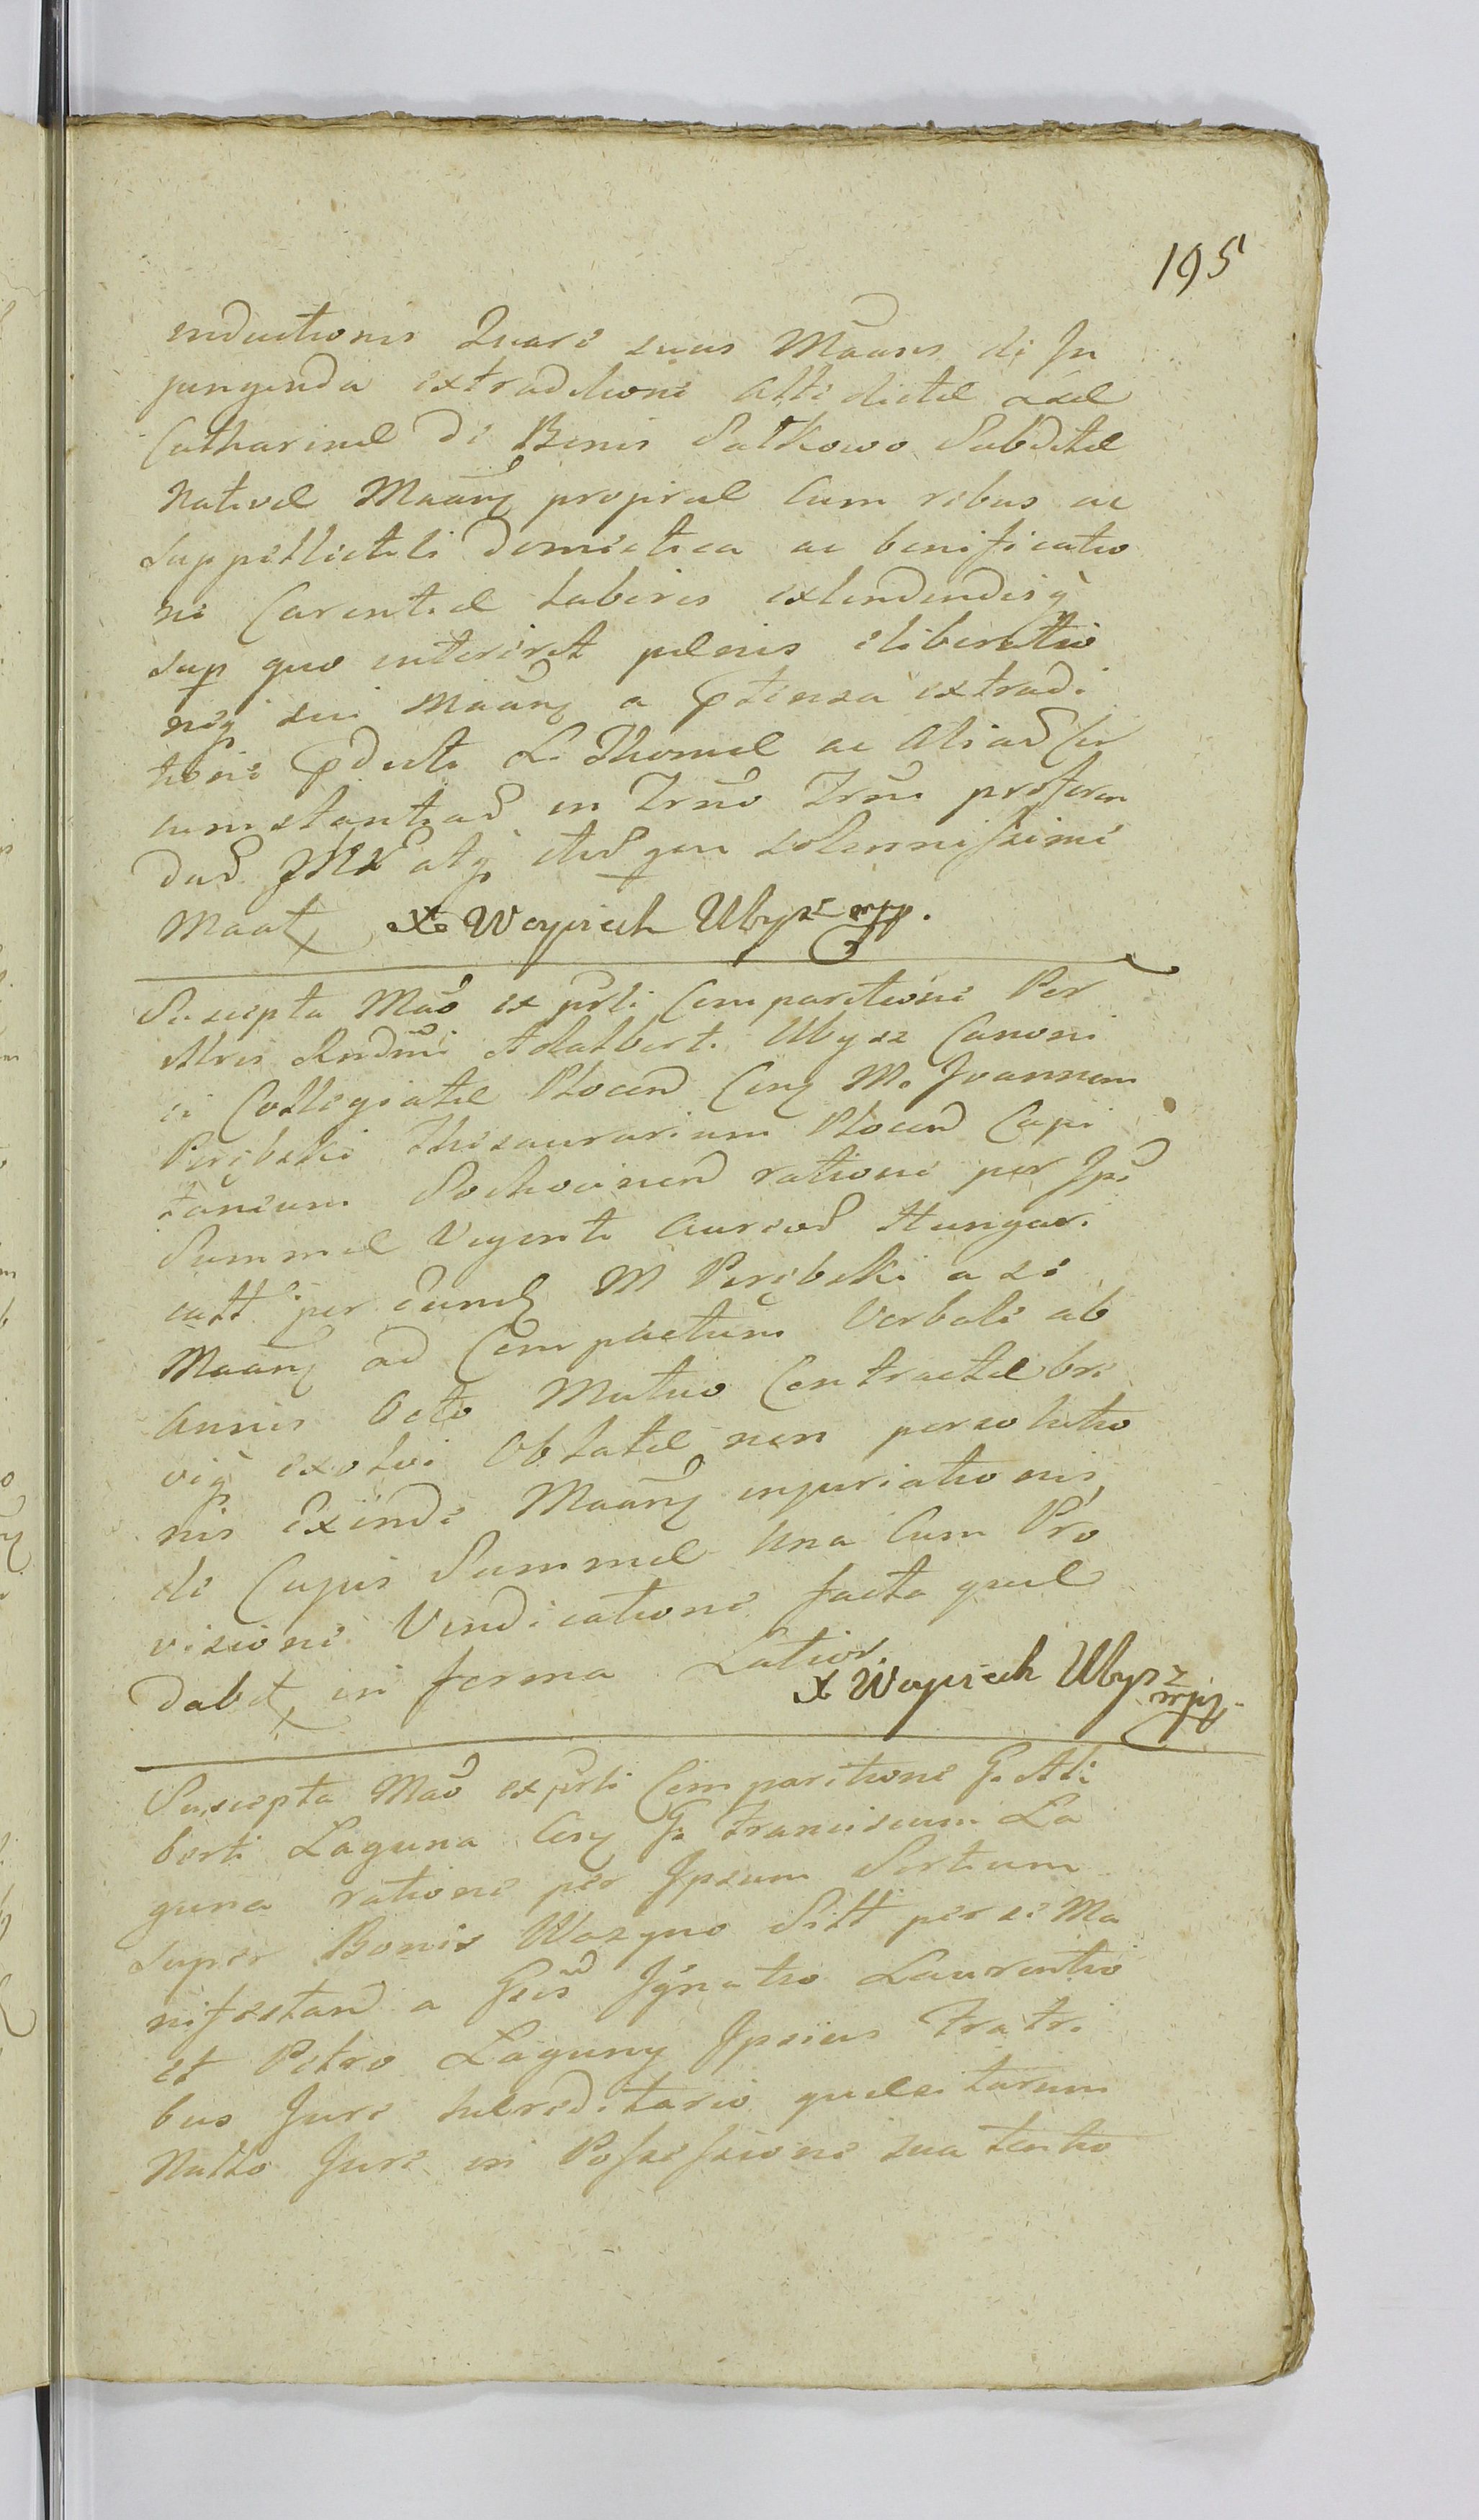 195
inductionis Quare suus Maans de In
jungenda extraditione Atte dictæ Lsæ
Catharinæ de Bonis Sałkowo Subditæ
Nativæ Maanq propriæ Cum rebus ac
Suppellictili domestica ac bonificatio
ne Carentiæ Laboris extendendisq
sup quo interest pœnis eliberatio
neq sui Maanq a ptensa extradi
tione pdicti L. Thomæ ac Aliad Cir
cumstantiad in Trno Trni proferen
dad JMX atq itd qm solennissime
Maat X Woyciech Ubysz mpp.
Suscepta Mao ex prti Comparitione Per
Illris Rndmi Adalberti Ubysz Canoni
ci Collegiatæ Plocen Conq M. Joannem
Perębski Thesaurarium Plocen Capi
taneum Sochocinen ratione per Ips
Summæ Viginti Aureod Hungari
catt per eund M Perębski a se
Maanq ad Compactum Verbale ab
Annis Octo Mutuo Contractæ bre
viq exolvi Oblatæ non persolutio
nis Exinde Maanq injuriationis
de Cujus Summæ Una Cum Pro
visione Vindicatione facta quæ
dabit in forma Latior.
X Woyciech Ubysz
mpp.
Suscepta Mao ex prti Comparitione G. Al
berti Laguna Conq G. Franciscum La
guna ratione per Ipsum Sortium
super Bonis Wazyno Sitt per se Ma
nifestan a Gsis Ignatio Laurentio
et Petro Laguny Ipsius Fratri
bus Jure hæreditario quæsitarum
Nullo Jure in Possessione sua tentio